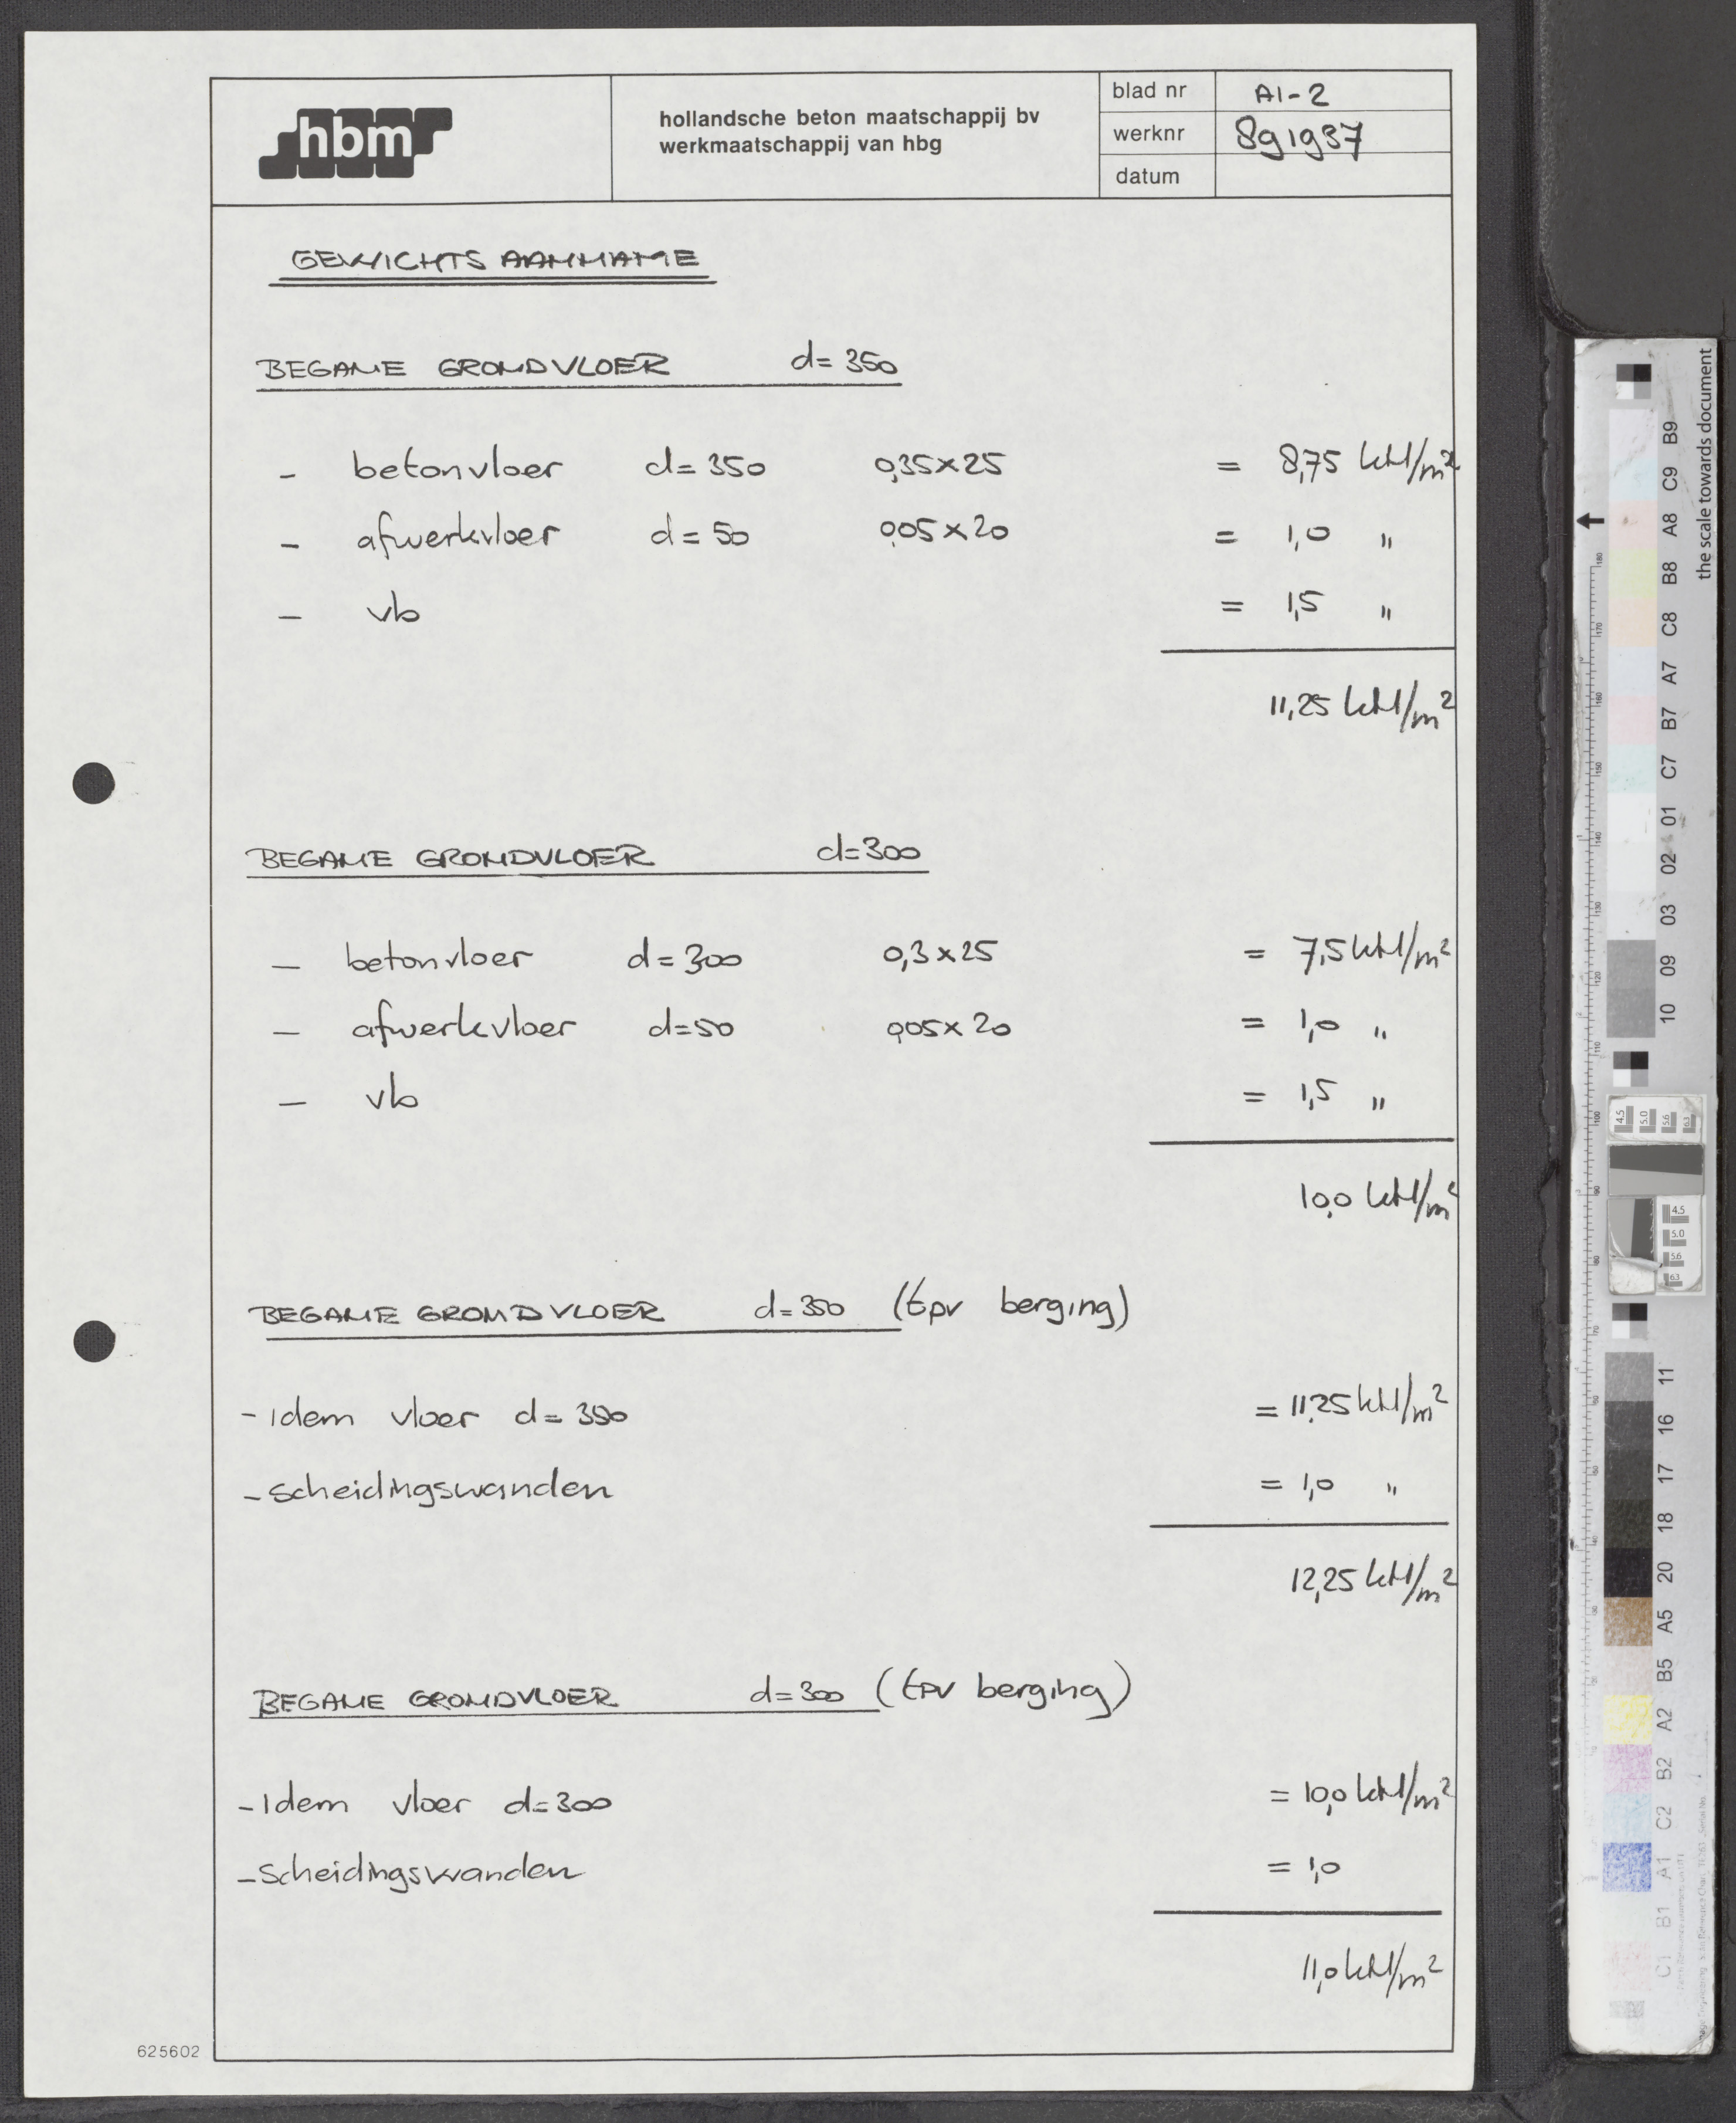 hbm
hollandsche beton maatschappij bv
werkmaatschappij van hbg
blad nr A1-2
werknr 891937
datum
GEWICHTS AANNAME
BEGANE GRONDVLOER d=350
- betonvloer d=350 0,35x25 = 8,75 kN/m²
- afwerkvloer d=50 0,05x20 = 1,0 "
- vb = 1,5 "
11,25 kN/m²
BEGANE GRONDVLOER d=300
- betonvloer d=300 0,3x25 = 7,5 kN/m²
- afwerkvloer d=50 0,05x20 = 1,0 "
- vb = 1,5 "
10,0 kN/m²
BEGANE GRONDVLOER d=350 (tpv berging)
- Idem vloer d=350 = 11,25 kN/m²
- Scheidingswanden = 1,0 "
12,25 kN/m²
BEGANE GRONDVLOER d=300 (tpv berging)
- Idem vloer d=300 = 10,0 kN/m²
- Scheidingswanden = 1,0
11,0 kN/m²
625602
the scale towards document
B9
C9
A8
B8
C8
A7
B7
C7
01
02
03
09
10
11
16
17
18
20
A5
B5
A2
B2
C2
A1
B1
C1